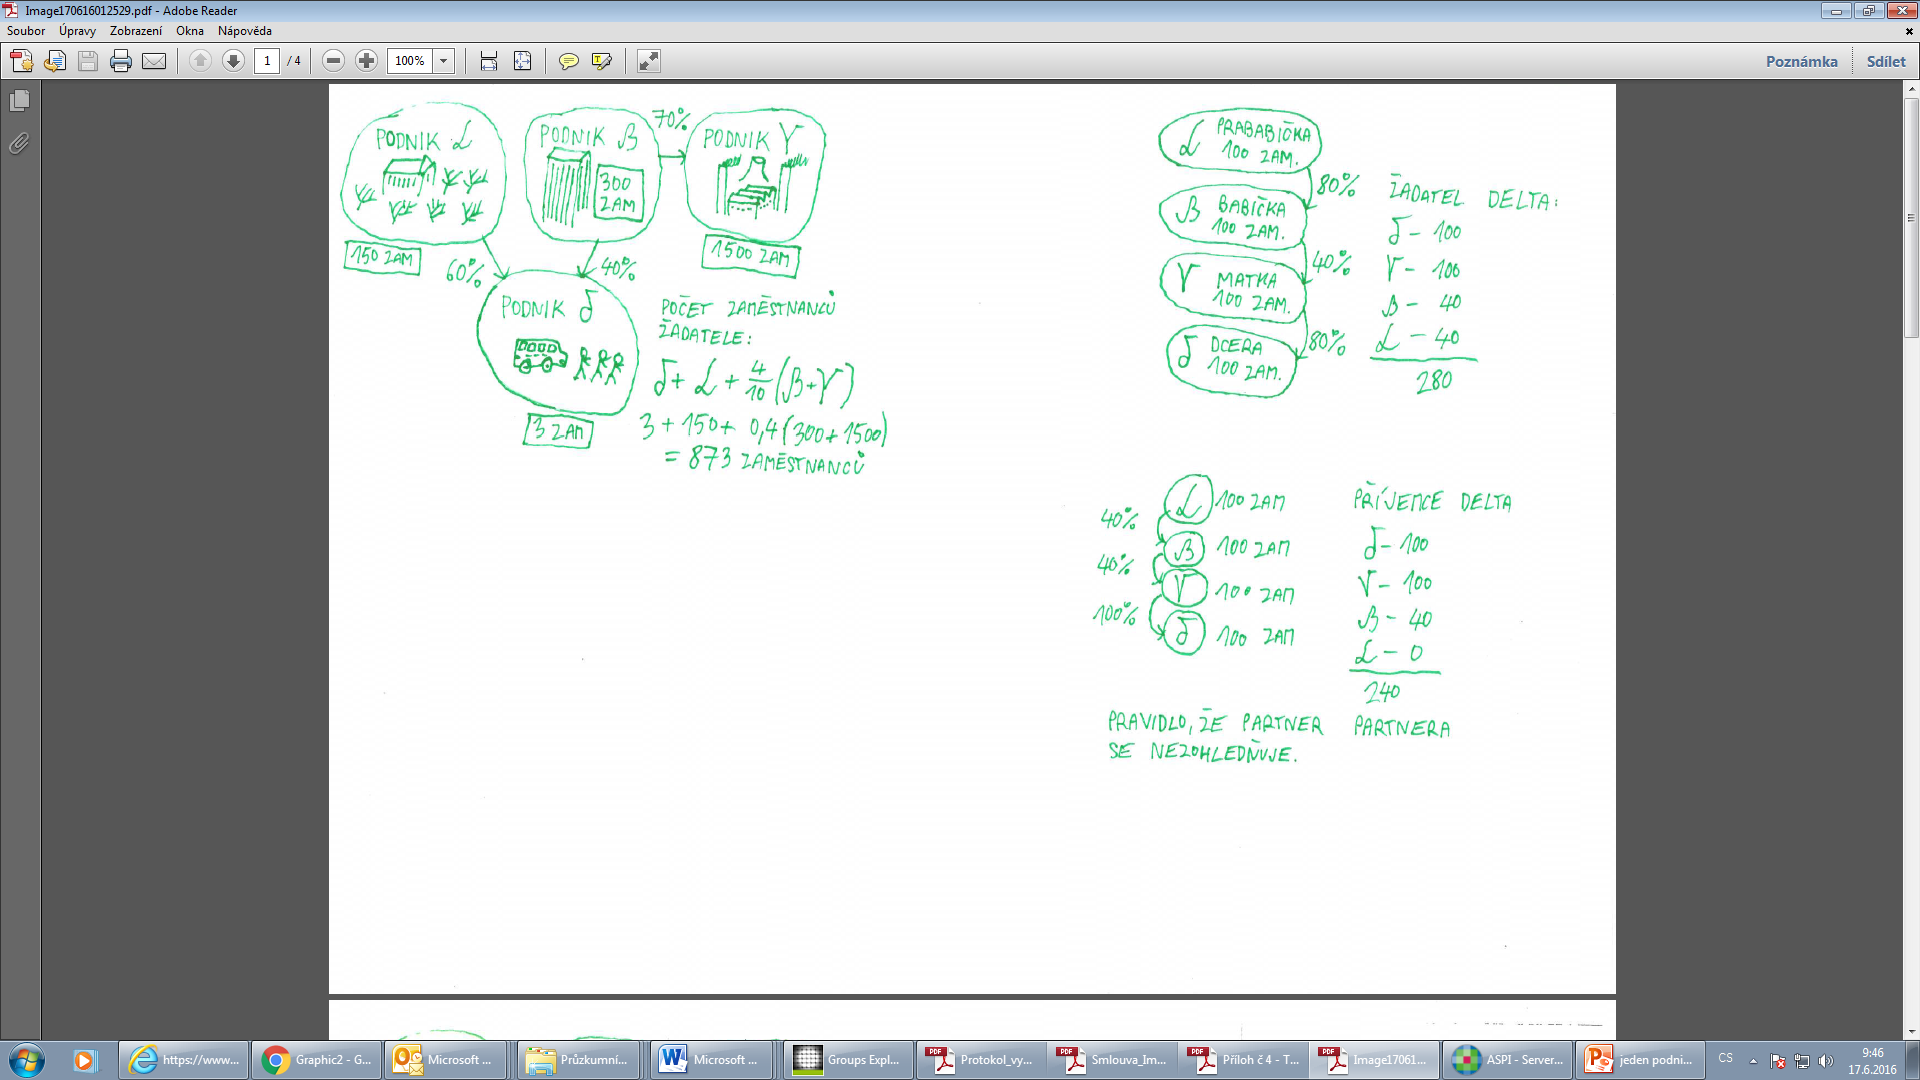 Image170616012529.pdf - Adobe Reader
Soubor Úpravy Zobrazení Okna Nápověda
1 / 4 100% Poznámka Sdílet
PODNIK α
150 ZAM
PODNIK β
300
ZAM
70%
PODNIK γ
1500 ZAM
60%
40%
PODNIK δ
3 ZAM
POČET ZAMĚSTNANCŮ
ŽADATELE:
δ + α + 4/10 (β+γ)
3 + 150 + 0,4 (300 + 1500)
= 873 ZAMĚSTNANCŮ
α PRABABIČKA
100 ZAM.
80%
β BABIČKA
100 ZAM.
40%
γ MATKA
100 ZAM.
80%
δ DCERA
100 ZAM.
ŽADATEL DELTA:
δ - 100
γ - 100
β - 40
α - 40
280
α 100 ZAM
40%
β 100 ZAM
40%
γ 100 ZAM
100%
δ 100 ZAM
PŘÍJEMCE DELTA
δ - 100
γ - 100
β - 40
α - 0
240
PRAVIDLO, ŽE PARTNER PARTNERA
SE NEZOHLEDŇUJE.
https://www... Graphic2 - G... Microsoft ... Průzkumní... Microsoft ... Groups Expl... Protokol_vy... Smlouva_Im... Příloh č 4 - T... Image17061... ASPI - Server... jeden podni... CS 9:46
17.6.2016